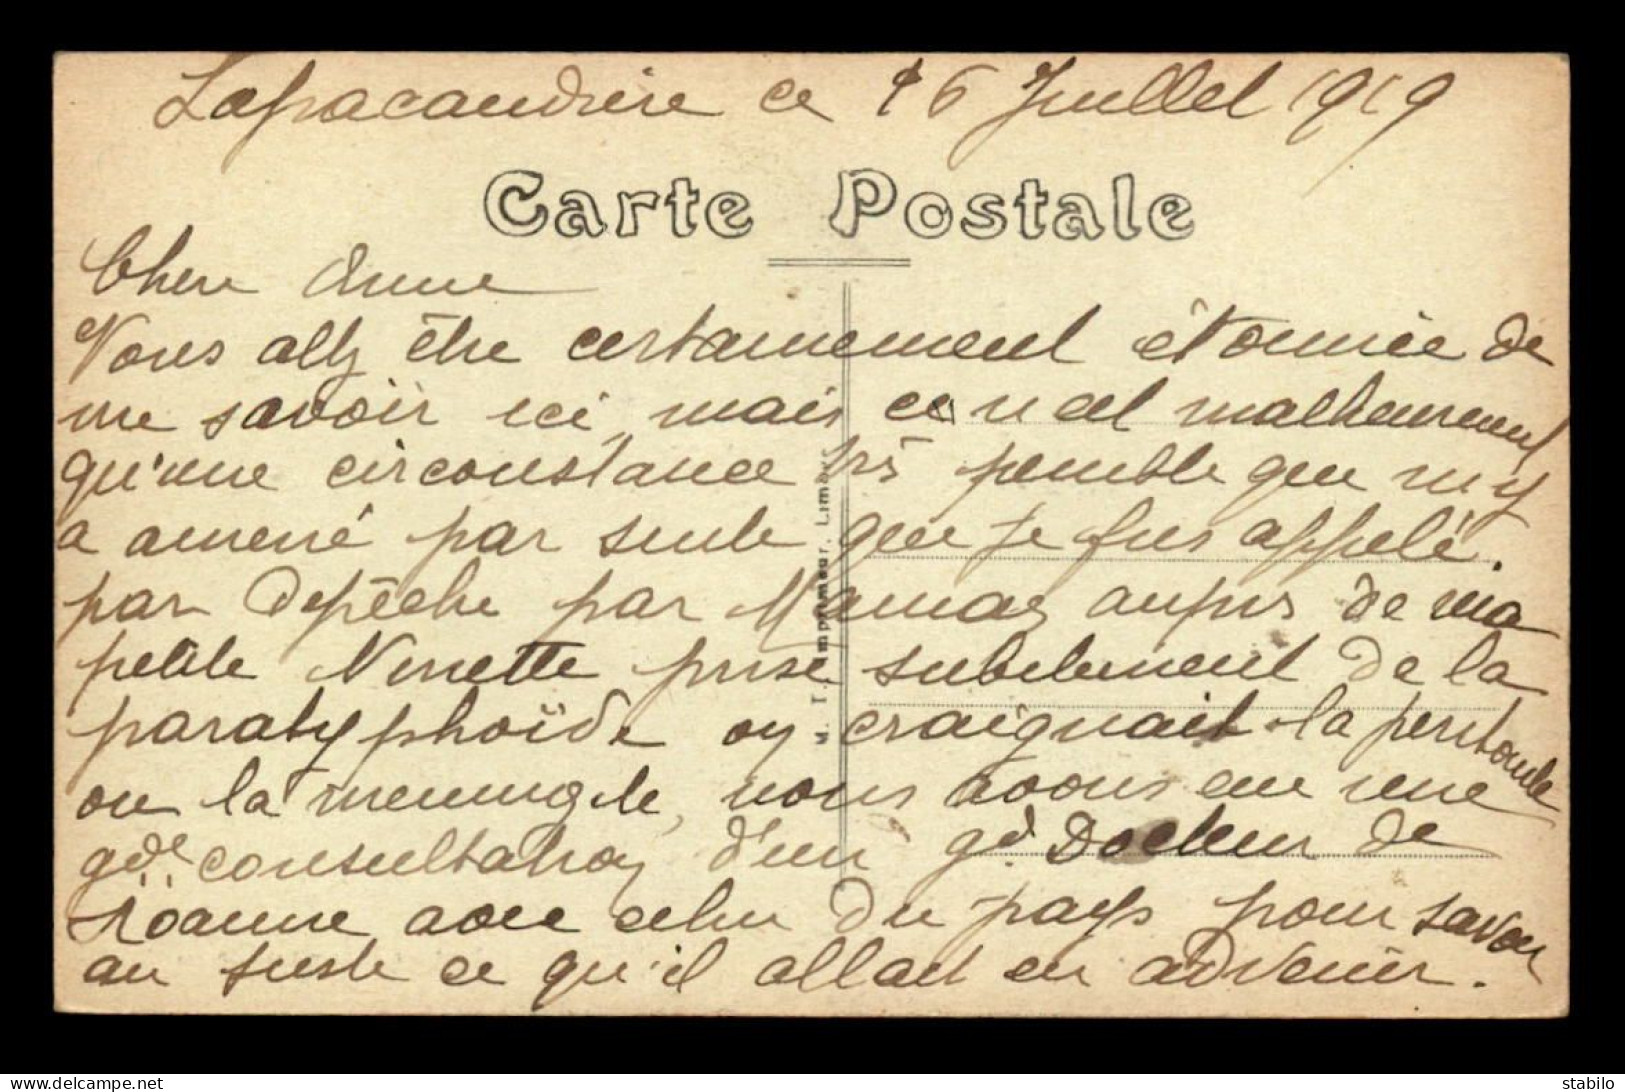 Lapacaudière ce 16 Juillet 1919
Carte Postale
Chere Anne
Vous allez être certainement étonnée de
me savoir ici, mais ce n'est malheureuset
qu'une circonstance très penible que m'y
a amené par suite que je fus appelé
par depêche par Maman aupres de ma
petite Ninette prise subitement de la
paratyphoïde on craignait la peritonite
ou la meningite, nous avons eue une
gde consultation d'un gd Docteur de
Roanne avec celui du pays pour savoir
au juste ce qu'il allait en advenir.
M. T. Imprimeur, Limoges
stabilo